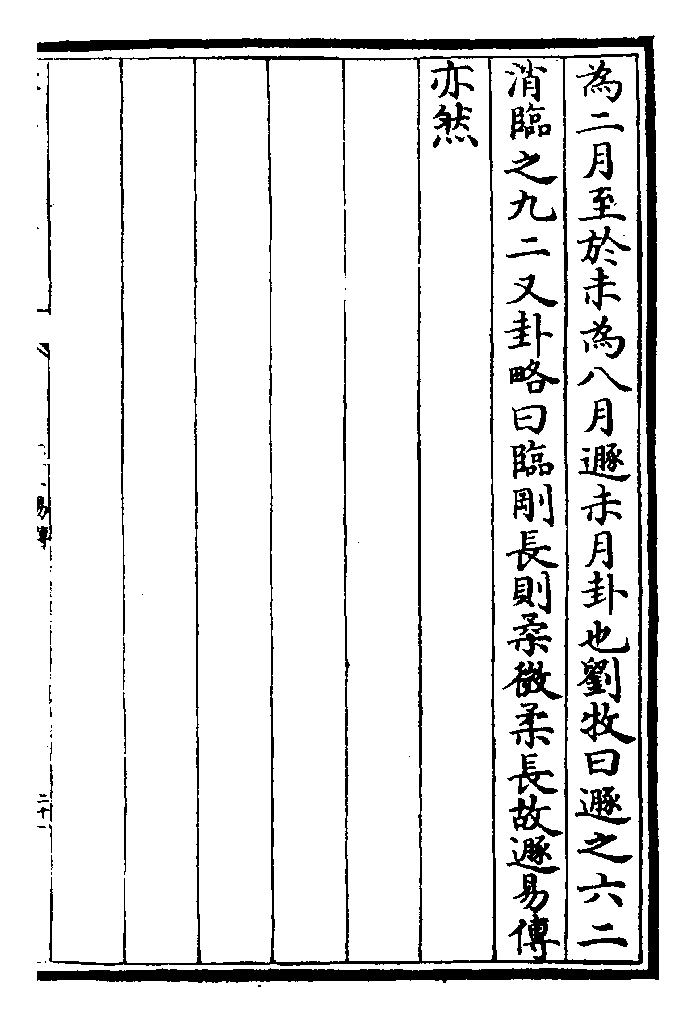 為二月至於未為八月遯未月卦也劉牧曰遯之六二
消臨之九二又卦略曰臨剛長則柔微柔長故遯易傳
亦然
易傳
二十一